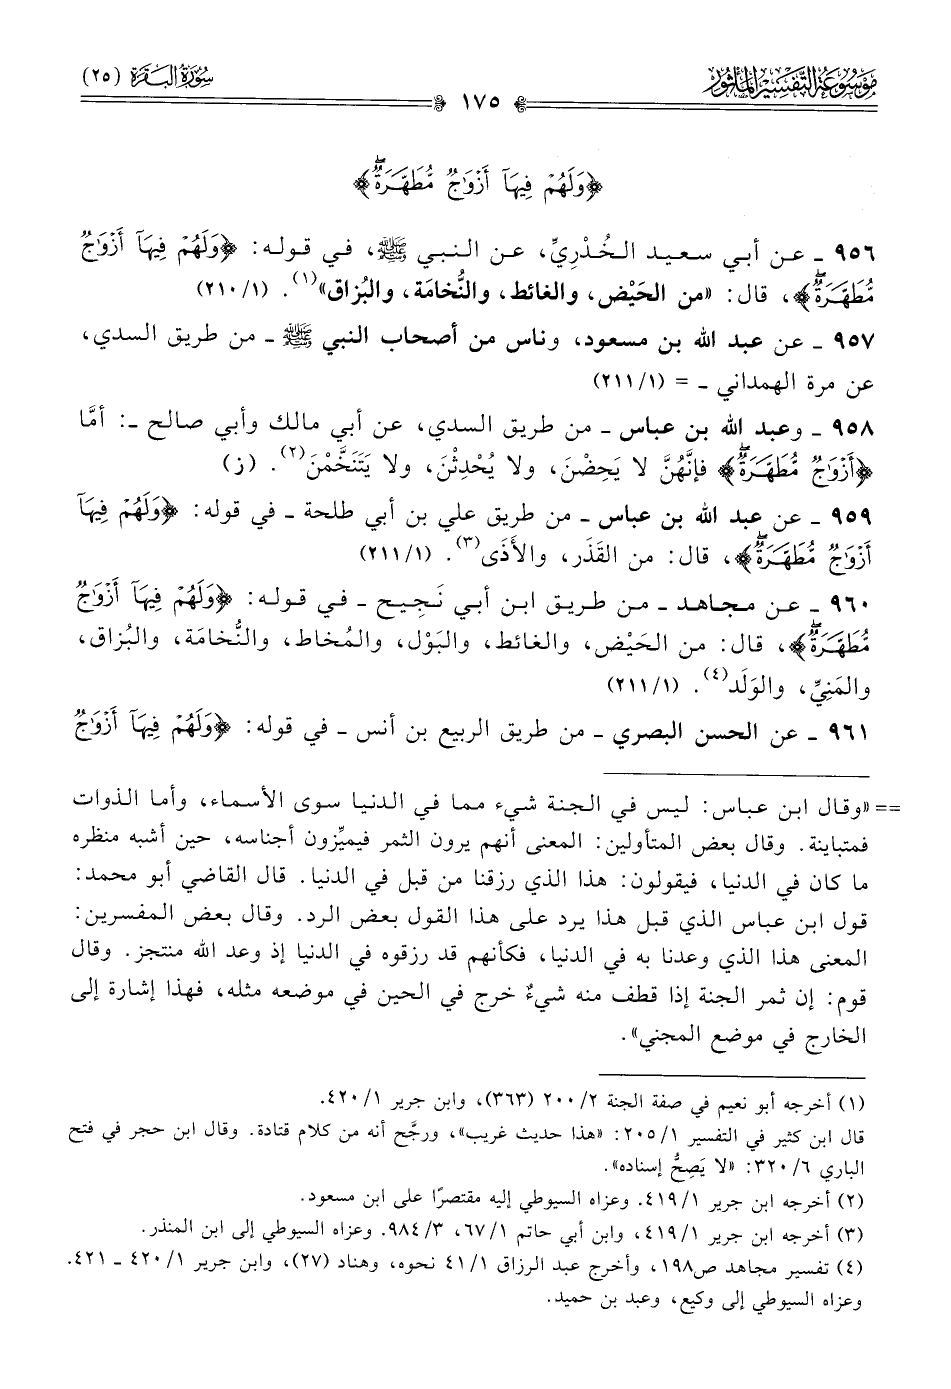 مَوْسُوعَة التَّفْسِيرِ المَأْثُور
١٧٥
سُورَةُ البَقَرَة (٢٥)
﴿وَلَهُمْ فِيهَآ أَزْوَٰجٌ مُّطَهَّرَةٌۖ﴾
٩٥٦ ـ عن أبي سعيد الخُدْرِيِّ، عن النبي ﷺ، في قوله: ﴿وَلَهُمْ فِيهَآ أَزْوَٰجٌ
مُّطَهَّرَةٌۖ﴾، قال: «من الحَيْض، والغائط، والنُّخامَة، والبُزاق»(١). (٢١٠/١)
٩٥٧ ـ عن عبد الله بن مسعود، وناس من أصحاب النبي ﷺ ـ من طريق السدي،
عن مرة الهمداني ـ = (٢١١/١)
٩٥٨ ـ وعبد الله بن عباس ـ من طريق السدي، عن أبي مالك وأبي صالح ـ: أمَّا
﴿أَزْوَٰجٌ مُّطَهَّرَةٌۖ﴾ فإنَّهُنَّ لا يَحِضْنَ، ولا يُحْدِثْنَ، ولا يَتَنَخَّمْنَ(٢). (ز)
٩٥٩ ـ عن عبد الله بن عباس ـ من طريق علي بن أبي طلحة ـ في قوله: ﴿وَلَهُمْ فِيهَآ
أَزْوَٰجٌ مُّطَهَّرَةٌۖ﴾، قال: من القَذَر، والأَذَى(٣). (٢١١/١)
٩٦٠ ـ عن مجاهد ـ من طريق ابن أبي نَجِيح ـ في قوله: ﴿وَلَهُمْ فِيهَآ أَزْوَٰجٌ
مُّطَهَّرَةٌۖ﴾، قال: من الحَيْض، والغائط، والبَوْل، والمُخاط، والنُّخامَة، والبُزاق،
والمَنِيِّ، والوَلَد(٤). (٢١١/١)
٩٦١ ـ عن الحسن البصري ـ من طريق الربيع بن أنس ـ في قوله: ﴿وَلَهُمْ فِيهَآ أَزْوَٰجٌ
== «وقال ابن عباس: ليس في الجنة شيء مما في الدنيا سوى الأسماء، وأما الذوات
فمتباينة. وقال بعض المتأولين: المعنى أنهم يرون الثمر فيميِّزون أجناسه، حين أشبه منظره
ما كان في الدنيا، فيقولون: هذا الذي رزقنا من قبل في الدنيا. قال القاضي أبو محمد:
قول ابن عباس الذي قبل هذا يرد على هذا القول بعض الرد. وقال بعض المفسرين:
المعنى هذا الذي وعدنا به في الدنيا، فكأنهم قد رزقوه في الدنيا إذ وعد الله منتجز. وقال
قوم: إن ثمر الجنة إذا قطف منه شيءٌ خرج في الحين في موضعه مثله، فهذا إشارة إلى
الخارج في موضع المجني».
(١) أخرجه أبو نعيم في صفة الجنة ٢/ ٢٠٠ (٣٦٣)، وابن جرير ١/ ٤٢٠.
قال ابن كثير في التفسير ١/ ٢٠٥: «هذا حديث غريب»، ورجَّح أنه من كلام قتادة. وقال ابن حجر في فتح
الباري ٦/ ٣٢٠: «لا يَصِحُّ إسناده».
(٢) أخرجه ابن جرير ١/ ٤١٩. وعزاه السيوطي إليه مقتصرًا على ابن مسعود.
(٣) أخرجه ابن جرير ١/ ٤١٩، وابن أبي حاتم ١/ ٦٧، ٣/ ٩٨٤. وعزاه السيوطي إلى ابن المنذر.
(٤) تفسير مجاهد ص١٩٨، وأخرج عبد الرزاق ١/ ٤١ نحوه، وهناد (٢٧)، وابن جرير ١/ ٤٢٠ ـ ٤٢١.
وعزاه السيوطي إلى وكيع، وعبد بن حميد.